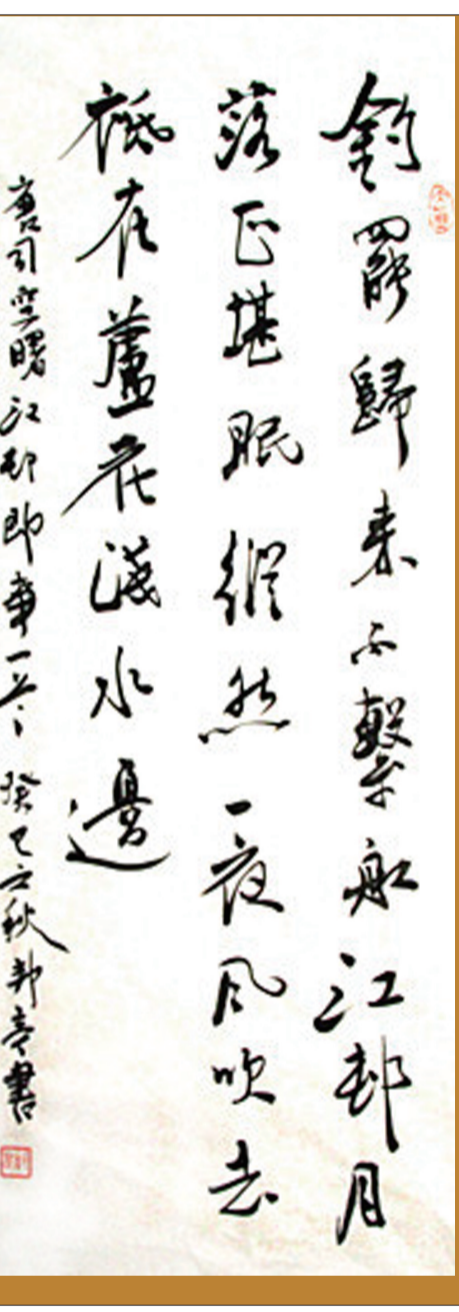 釣罷歸來不繫船江邨月
落正堪眠縱然一夜風吹去
祗在蘆花淺水邊
唐司空曙江邨即事一首 癸巳立秋 書